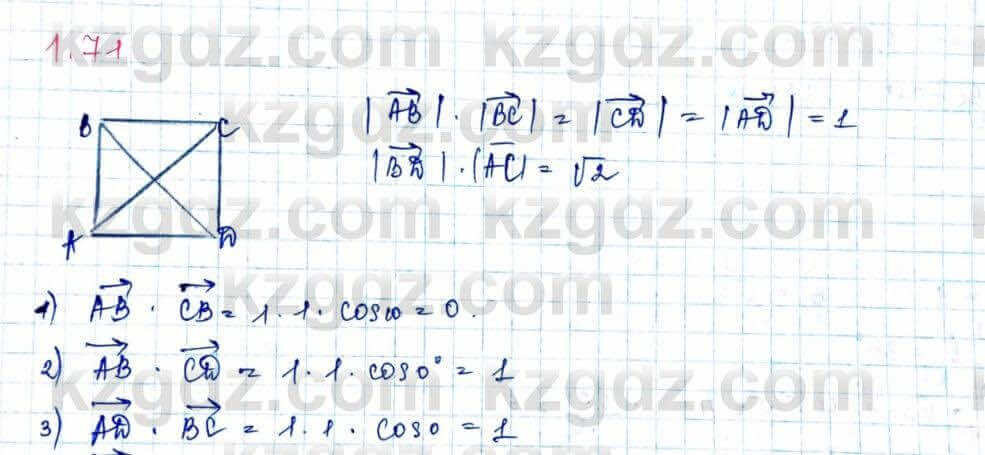 kzgdz.com kzgdz.com
1.71
B C
A D
|AB| · |BC| = |CD| = |AD| = 1
|BD| · |AC| = √2
kzgdz.com kzgdz.com
kzgdz.com
1) AB · CB = 1 · 1 · cos 90 = 0.
2) AB · CD = 1 · 1 · cos 0° = 1
kzgdz.com kzgdz.com
3) AD · BC = 1 · 1 · cos 0 = 1